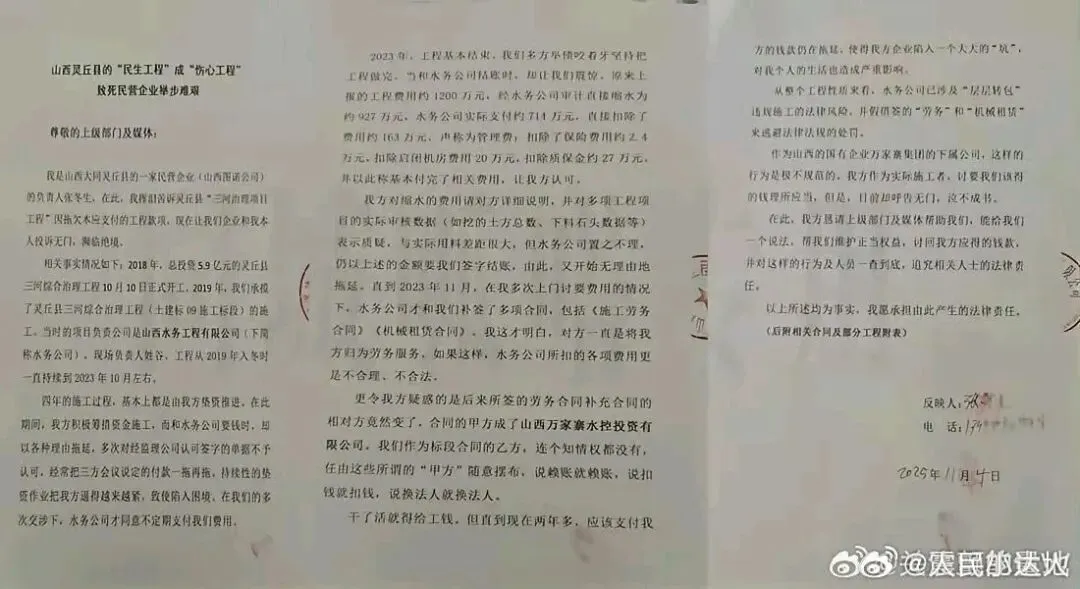 山西灵丘县的“民生工程”成“伤心工程”
致死民营企业举步难艰
尊敬的上级部门及媒体：
我是山西大同灵丘县的一家民营企业（山西图诺公司）
的负责人张冬生，在此，我挥泪苦诉灵丘县“三河治理项目
工程”因拖欠本应支付的工程款项，现在让我们企业和我本
人投诉无门，濒临绝境。
相关事实情况如下：2018年，总投资5.9亿元的灵丘县
三河综合治理工程10月10日正式开工。2019年，我们承揽
了灵丘县三河综合治理工程（土建标09施工标段）的施
工。当时的项目负责公司是山西水务工程有限公司（下简
称水务公司），现场负责人姓谷，工程从2019年入冬时
一直持续到2023年10月左右。
四年的施工过程，基本上都是由我方垫资推进。在此
期间，我方积极筹措资金施工，而和水务公司要钱时，却
以各种理由拖延，多次对经监理公司认可签字的单据不予
认可，经常把三方会议议定的付款一拖再拖，持续性的垫
资作业把我方逼得越来越紧，致使陷入困境。在我们的多
次交涉下，水务公司才同意不定期支付我们费用。
2023年，工程基本结束，我们多方举债咬着牙坚持把
工程做完。当和水务公司结账时，却让我们震惊，原来上
报的工程费用约1200万元，经水务公司审计直接缩水为
约927万元，水务公司实际支付约714万元，直接扣除了
费用约163万元，声称为管理费；扣除了保险费用约2.4
万元，扣除启闭机房费用20万元，扣除质保金约27万元，
并以此称基本付完了相关费用，让我方认可。
我方对缩水的费用请对方详细说明，并对多项工程项
目的实际审核数据（如挖的土方总数、下料石头数据等）
表示质疑，与实际用料差距很大，但水务公司置之不理，
仍以上述的金额要我们签字结账，由此，又开始无理由地
拖延。直到2023年11月，在我多次上门讨要费用的情况
下，水务公司才和我们补签了多项合同，包括《施工劳务
合同》《机械租赁合同》。我这才明白，对方一直是将我
方归为劳务服务，如果这样，水务公司所扣的各项费用更
是不合理、不合法。
更令我方疑惑的是后来所签的劳务合同补充合同的
相对方竟然变了，合同的甲方成了山西万家寨水控投资有
限公司。我们作为标段合同的乙方，连个知情权都没有，
任由这些所谓的“甲方”随意摆布，说赖账就赖账，说扣
钱就扣钱，说换法人就换法人。
干了活就得给工钱。但直到现在两年多，应该支付我
方的钱款仍在拖延，使得我方企业陷入一个大大的“坑”，
对我个人的生活也造成严重影响。
从整个工程性质来看，水务公司已涉及“层层转包”
违规施工的法律风险，并假借签的“劳务”和“机械租赁”
来逃避法律法规的处罚。
作为山西的国有企业万家寨集团的下属公司，这样的
行为是极不规范的。我方作为实际施工者，讨要我们该得
的钱理所应当，但是，目前却呼告无门，泣不成书。
在此，我方恳请上级部门及媒体帮助我们，能给我们
一个说法，帮我们维护正当权益，讨回我方应得的钱款，
并对这样的行为及人员一查到底，追究相关人士的法律责
任。
以上所述均为事实，我愿承担由此产生的法律责任。
（后附相关合同及部分工程附表）
反映人：张
电 话：
2025年11月4日